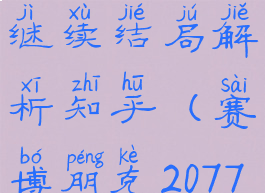 jì xù jié jú jiě
继续结局解
xī zhī hū sài
析知乎（赛
bó péng kè
博朋克 2077